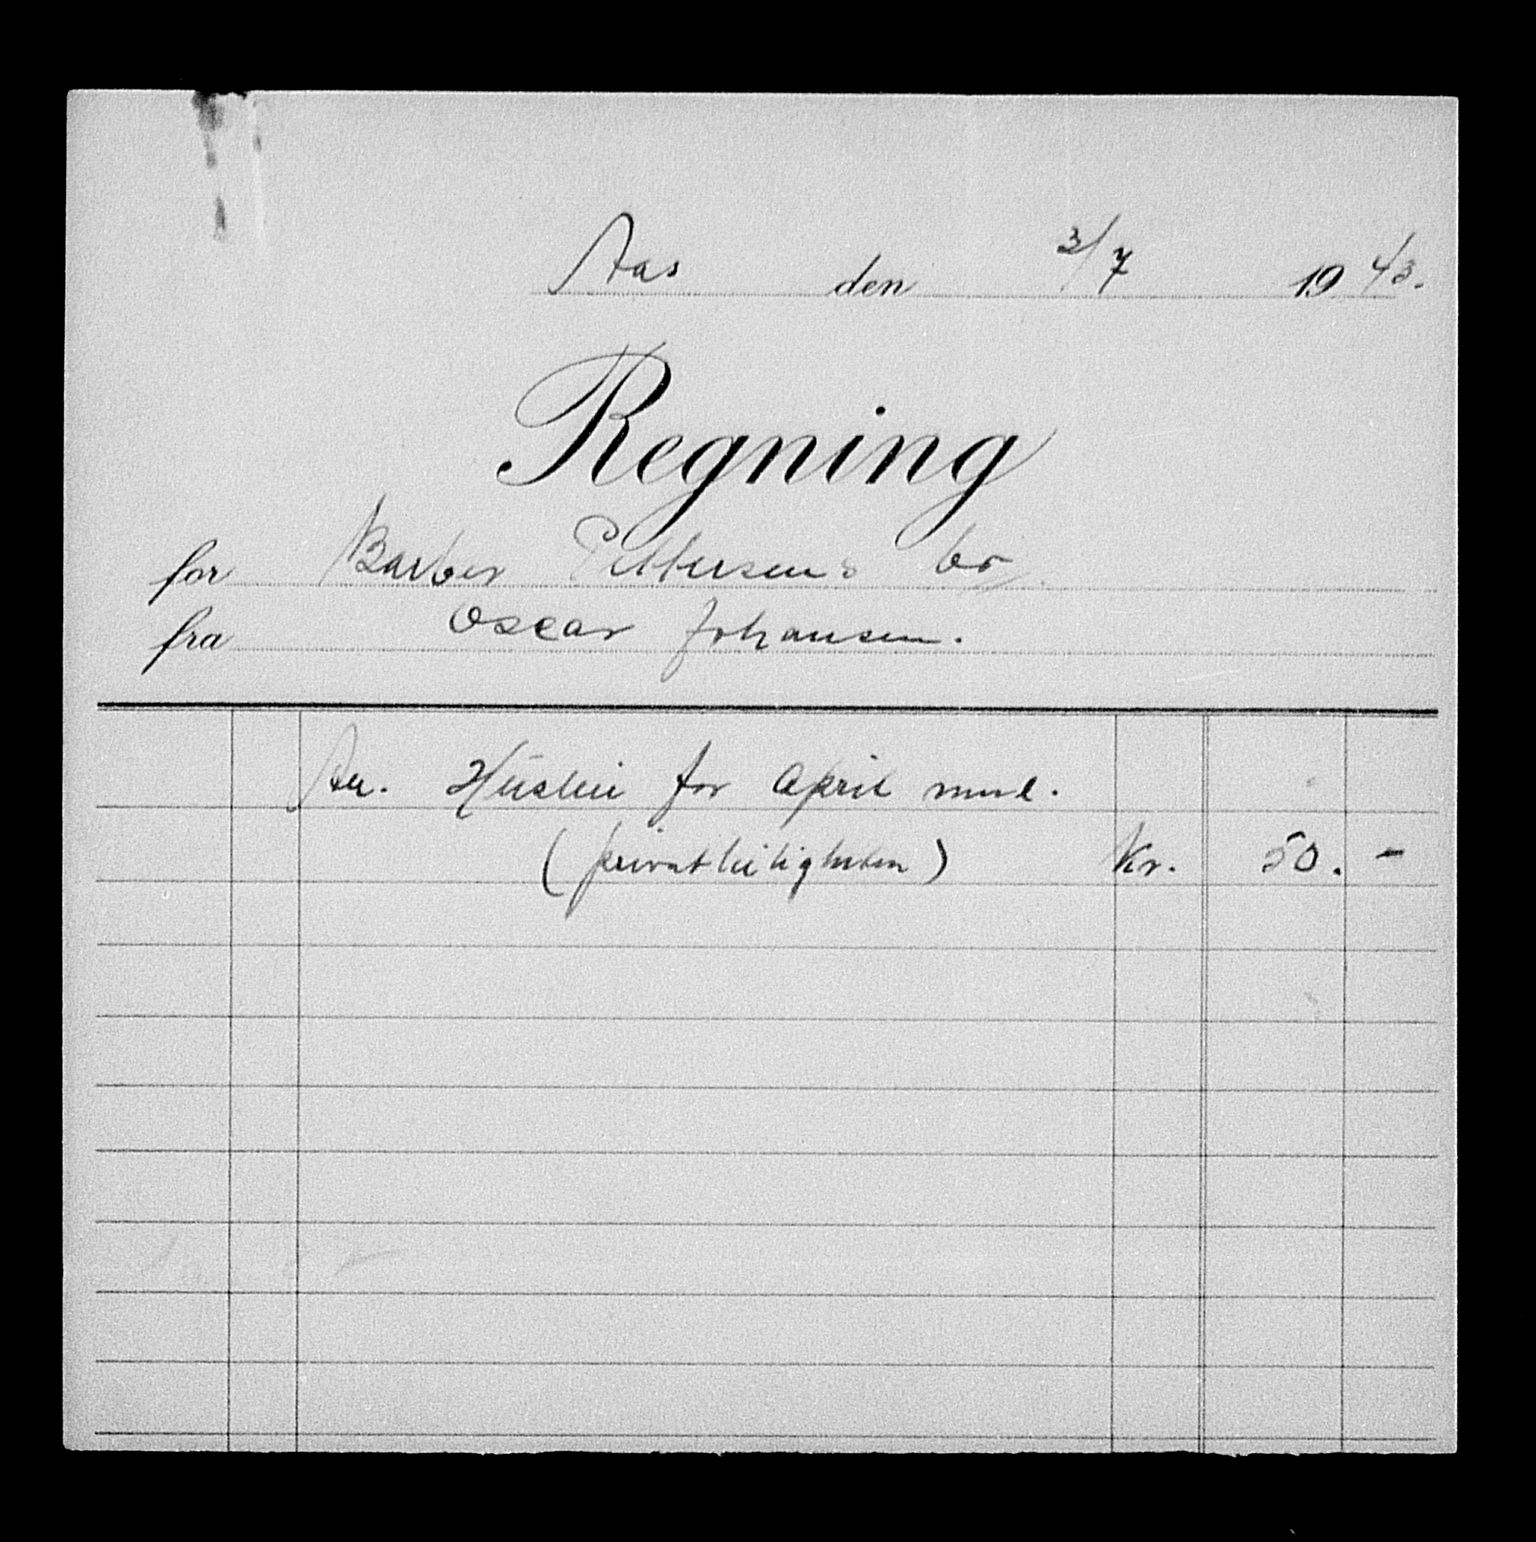 Aas den 3/7 1943.
Regning
for Barber Pettersens bo
fra Oscar Johansen.
An. Husleie for April mnd.
(privatleiligheten) Kr. 50.-